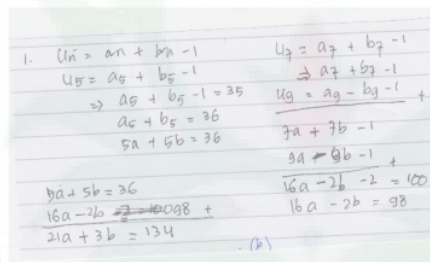 1. Un = an + bn - 1
U5 = a5 + b5 - 1
⇒ a5 + b5 - 1 = 35
a5 + b5 = 36
5a + 5b = 36
5a + 5b = 36
16a - 2b = 98 +
21a + 3b = 134
U7 = a7 + b7 - 1
⇒ a7 + b7 - 1
U9 = a9 - b9 - 1 +
7a + 7b - 1
9a - 9b - 1 +
16a - 2b - 2 = 100
16a - 2b = 98
(b)